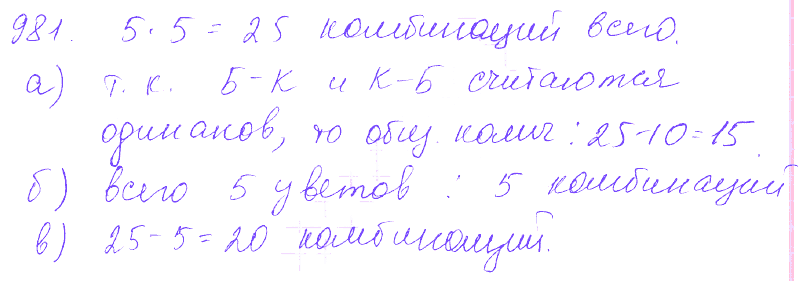 981. 5·5=25 комбинаций всего.
а) т.к. Б-К и К-Б считаются
одинаков, то общ. колич: 25-10=15.
б) всего 5 цветов : 5 комбинаций
в) 25-5=20 комбинаций.